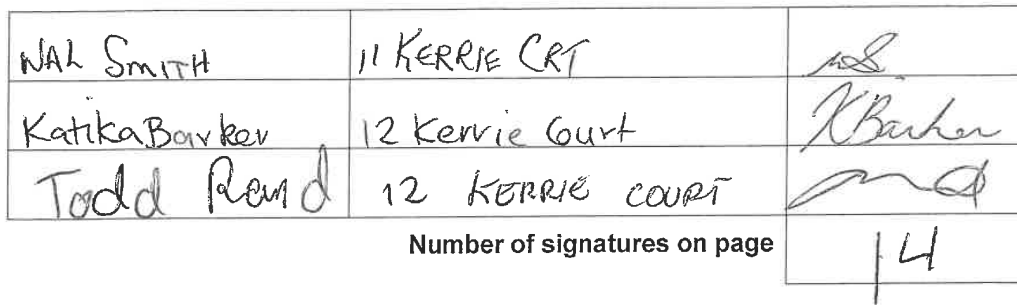 NAL SMITH 11 KERRIE CRT
Katika Barker 12 Kerrie Court K Barker
Todd Rand 12 KERRIE COURT
Number of signatures on page 14